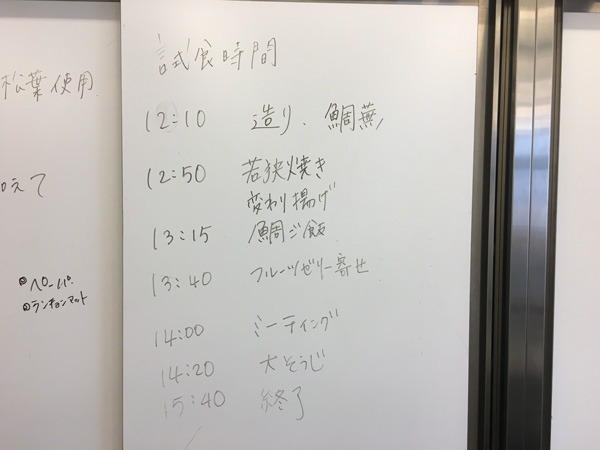 松葉使用
加えて
ペーパー
ランチョンマット
試食時間
12:10 造り、鯛蕪
12:50 若狭焼き
変わり揚げ
13:15 鯛ご飯
13:40 フルーツゼリー寄せ
14:00 ミーティング
14:20 大そうじ
15:40 終了